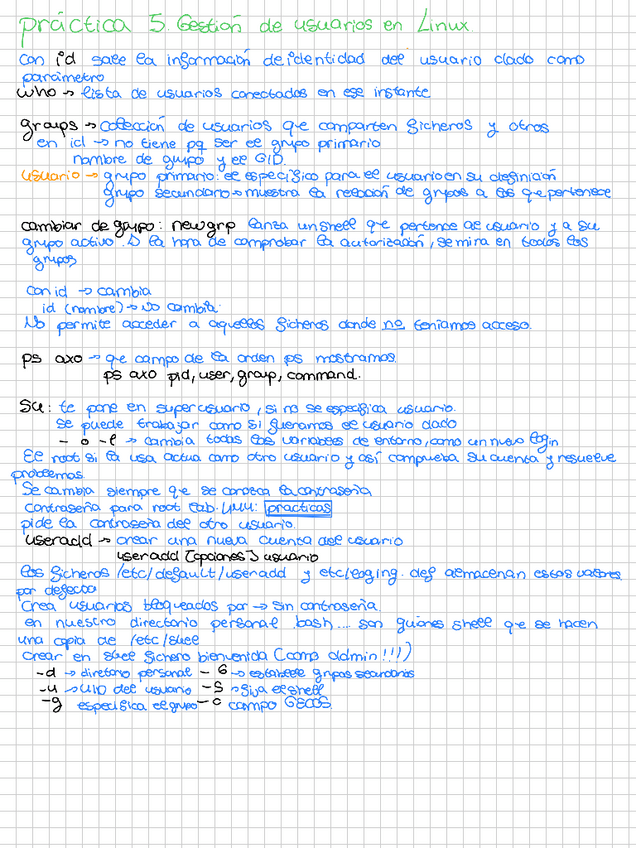 práctica 5. Gestión de usuarios en Linux.
con id sale la información de identidad del usuario dado como
parámetro
who → lista de usuarios conectados en ese instante
groups → colección de usuarios que comparten ficheros y otros
en id → no tiene pq ser el grupo primario
nombre de grupo y el GID.
usuario → grupo primario: el específico para el usuario en su definición
grupo secundario → muestra la relación de grupos a los que pertenece
cambiar de grupo: newgrp lanza un shell que pertenece al usuario y a su
grupo activo. A la hora de comprobar la autorización, se mira en todos los
grupos
con id → cambia
id (nombre) → No cambia.
No permite acceder a aquellos ficheros donde no teníamos acceso.
ps axo → que campo de la orden ps mostramos.
ps axo pid, user, group, command.
su: te pone en superusuario, si no se especifica usuario.
se puede trabajar como si fueramos el usuario dado
- o -l → cambia todas las variables de entorno, como un nuevo login
El root si la usa actua como otro usuario y así comprueba su cuenta y resuelve
problemas.
Se cambia siempre que se conozca la contraseña
contraseña para root lab. : practicas
pide la contraseña del otro usuario.
useradd → crear una nueva cuenta del usuario
useradd [opciones] usuario
los ficheros /etc/default/useradd y etc/loging.def almacenan estos valores
por defecto
Crea usuarios bloqueados por → sin contraseña.
en nuestro directorio personal .bash... son guiones shell que se hacen
una copia de /etc/skel
crear en skel fichero bienvenida (como admin!!!)
-d → diretorio personal -G → establece grupos secundarios
-u → UID del usuario -s → fija el shell
-g especifica el grupo -c campo GECOS.